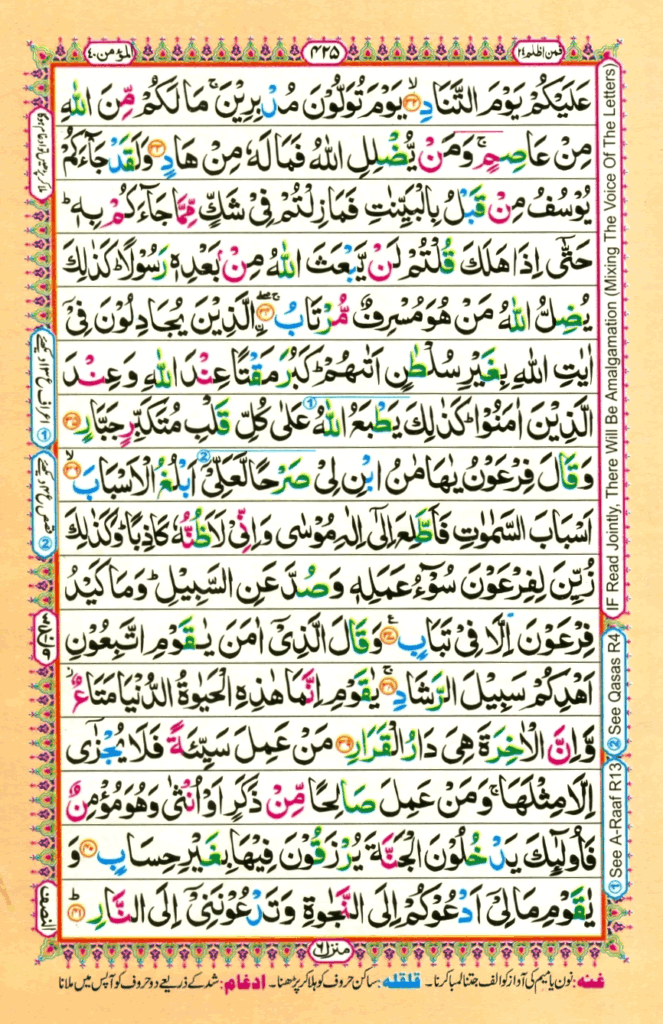 فمن اظلم ۲۴
۴۲۵
المؤمن ۴۰
عَلَيْكُمْ يَوْمَ التَّنَادِ ﴿۳۲﴾ۙ يَوْمَ تُوَلُّوْنَ مُدْبِرِيْنَ ۚ مَا لَكُمْ مِّنَ اللّٰهِ
مِنْ عَاصِمٍ ۚ وَمَنْ يُّضْلِلِ اللّٰهُ فَمَا لَهٗ مِنْ هَادٍ ﴿۳۳﴾ وَلَقَدْ جَآءَكُمْ
يُوْسُفُ مِنْ قَبْلُ بِالْبَيِّنٰتِ فَمَا زِلْتُمْ فِيْ شَكٍّ مِّمَّا جَآءَكُمْ بِهٖ ؕ
حَتّٰۤى اِذَا هَلَكَ قُلْتُمْ لَنْ يَّبْعَثَ اللّٰهُ مِنْۢ بَعْدِهٖ رَسُوْلًا ؕ كَذٰلِكَ
يُضِلُّ اللّٰهُ مَنْ هُوَ مُسْرِفٌ مُّرْتَابُ ﴿۳۴﴾ ۨالَّذِيْنَ يُجَادِلُوْنَ فِيْۤ
اٰيٰتِ اللّٰهِ بِغَيْرِ سُلْطٰنٍ اَتٰىهُمْ ؕ كَبُرَ مَقْتًا عِنْدَ اللّٰهِ وَعِنْدَ
الَّذِيْنَ اٰمَنُوْا ؕ كَذٰلِكَ يَطْبَعُ اللّٰهُ ① عَلٰى كُلِّ قَلْبِ مُتَكَبِّرٍ جَبَّارٍ ﴿۳۵﴾
وَقَالَ فِرْعَوْنُ يٰهَامٰنُ ابْنِ لِيْ صَرْحًا ② لَّعَلِّيْۤ اَبْلُغُ الْاَسْبَابَ ﴿۳۶﴾ۙ
اَسْبَابَ السَّمٰوٰتِ فَاَطَّلِعَ اِلٰۤى اِلٰهِ مُوْسٰى وَاِنِّيْ لَاَظُنُّهٗ كَاذِبًا ؕ وَكَذٰلِكَ
زُيِّنَ لِفِرْعَوْنَ سُوْٓءُ عَمَلِهٖ وَصُدَّ عَنِ السَّبِيْلِ ؕ وَمَا كَيْدُ
فِرْعَوْنَ اِلَّا فِيْ تَبَابٍ ﴿۳۷﴾ؑ وَقَالَ الَّذِيْۤ اٰمَنَ يٰقَوْمِ اتَّبِعُوْنِ
اَهْدِكُمْ سَبِيْلَ الرَّشَادِ ﴿۳۸﴾ۚ يٰقَوْمِ اِنَّمَا هٰذِهِ الْحَيٰوةُ الدُّنْيَا مَتَاعٌ ؗ
وَّاِنَّ الْاٰخِرَةَ هِيَ دَارُ الْقَرَارِ ﴿۳۹﴾ مَنْ عَمِلَ سَيِّئَةً فَلَا يُجْزٰۤى
اِلَّا مِثْلَهَا ۚ وَمَنْ عَمِلَ صَالِحًا مِّنْ ذَكَرٍ اَوْ اُنْثٰى وَهُوَ مُؤْمِنٌ
فَاُولٰٓئِكَ يَدْخُلُوْنَ الْجَنَّةَ يُرْزَقُوْنَ فِيْهَا بِغَيْرِ حِسَابٍ ﴿۴۰﴾ وَ
يٰقَوْمِ مَا لِيْۤ اَدْعُوْكُمْ اِلَى النَّجٰوةِ وَتَدْعُوْنَنِيْۤ اِلَى النَّارِ ﴿۴۱﴾ؕ
IF Read Jointly, There Will Be Amalgamation (Mixing The Voice Of The Letters)
② See Qasas R4
① See A-Raaf R13
النصف
منزل ۶
غنه: نون یا میم کی آواز کو الف جتنا لمبا کرنا۔ قلقله: ساکن حروف کو ہلا کر پڑھنا۔ ادغام: شد کے ذریعے دو حروف کو آپس میں ملانا